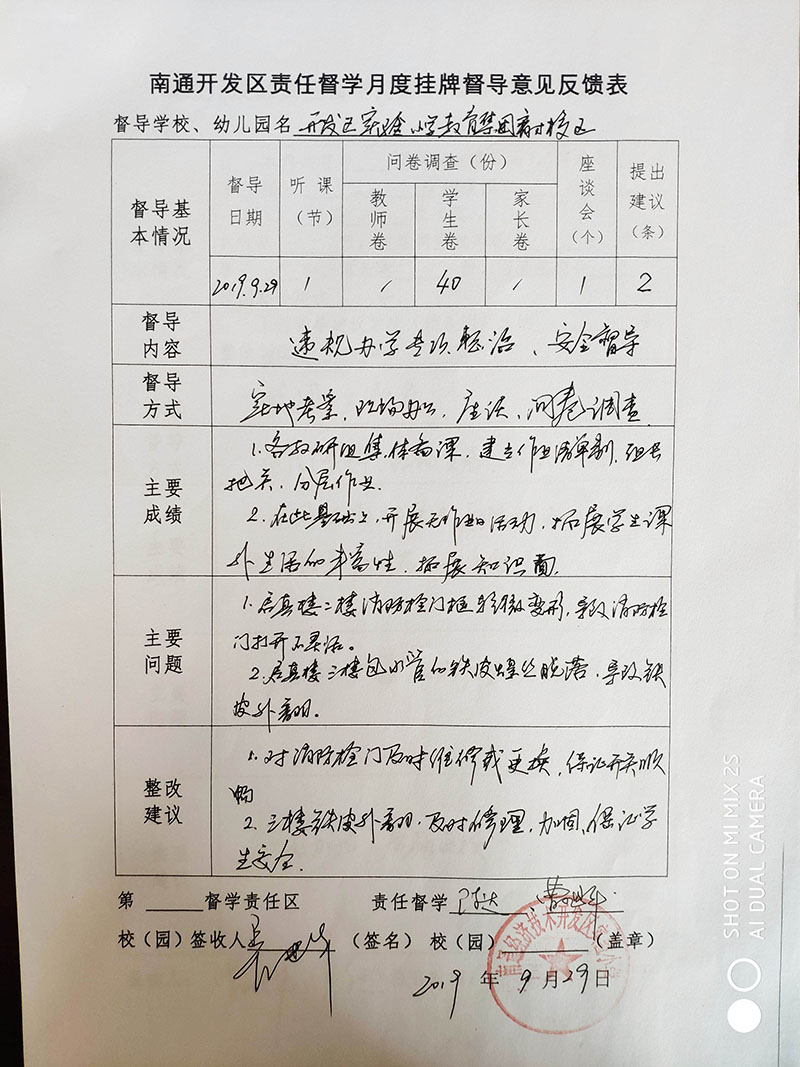 南通开发区责任督学月度挂牌督导意见反馈表
督导学校、幼儿园名 开发区实验小学教育集团新校区
督导基本情况
督导日期
听课（节）
问卷调查（份）
教师卷
学生卷
家长卷
座谈会（个）
提出建议（条）
2019.9.29 1 / 40 / 1 2
督导内容
违规办学专项整治、安全督导
督导方式
实地考察、座谈、问卷调查
主要成绩
1.各教研组集体备课，建立作业清单制，组长
把关，分层作业.
2.在此基础上，开展无作业日活动，拓展学生课
外生活的丰富性，拓展知识面.
主要问题
1.启真楼二楼消防栓门框轻微变形，导致消防栓
门打开不灵活。
2.启真楼三楼包水管的铁皮螺丝脱落，导致铁
皮外翻。
整改建议
1.对消防栓门及时维修或更换，保证开关顺
畅
2.三楼铁皮外翻，及时修理，加固，保证学
生安全.
第 督学责任区 责任督学
校（园）签收人 （签名） 校（园） （盖章）
2019 年 9 月 29 日
SHOT ON MI MIX 2S
AI DUAL CAMERA